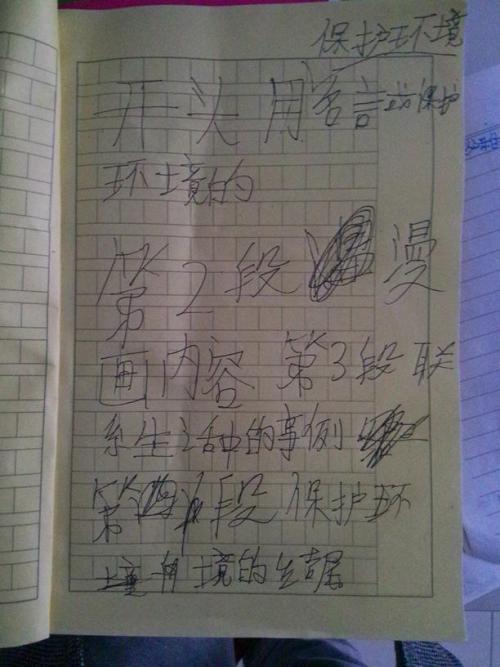 保护环境
开头用名言 保护
环境的
第2段 漫
画内容 第3段联
系生活中的事例
第 段 保护环
境 境的